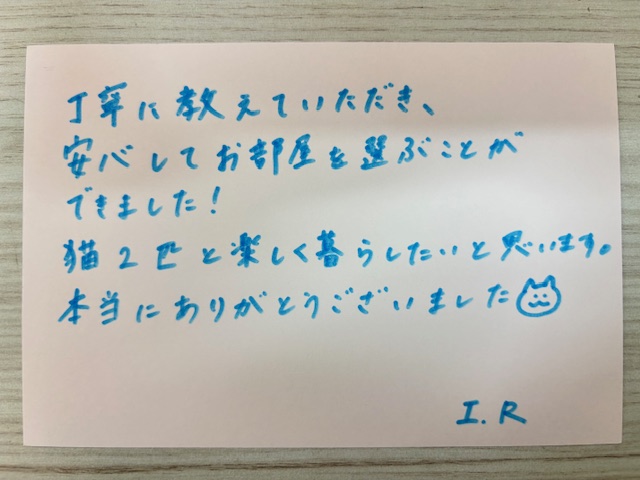 丁寧に教えていただき、
安心してお部屋を選ぶことが
できました!
猫2匹と楽しく暮らしたいと思います。
本当にありがとうございました
I.R